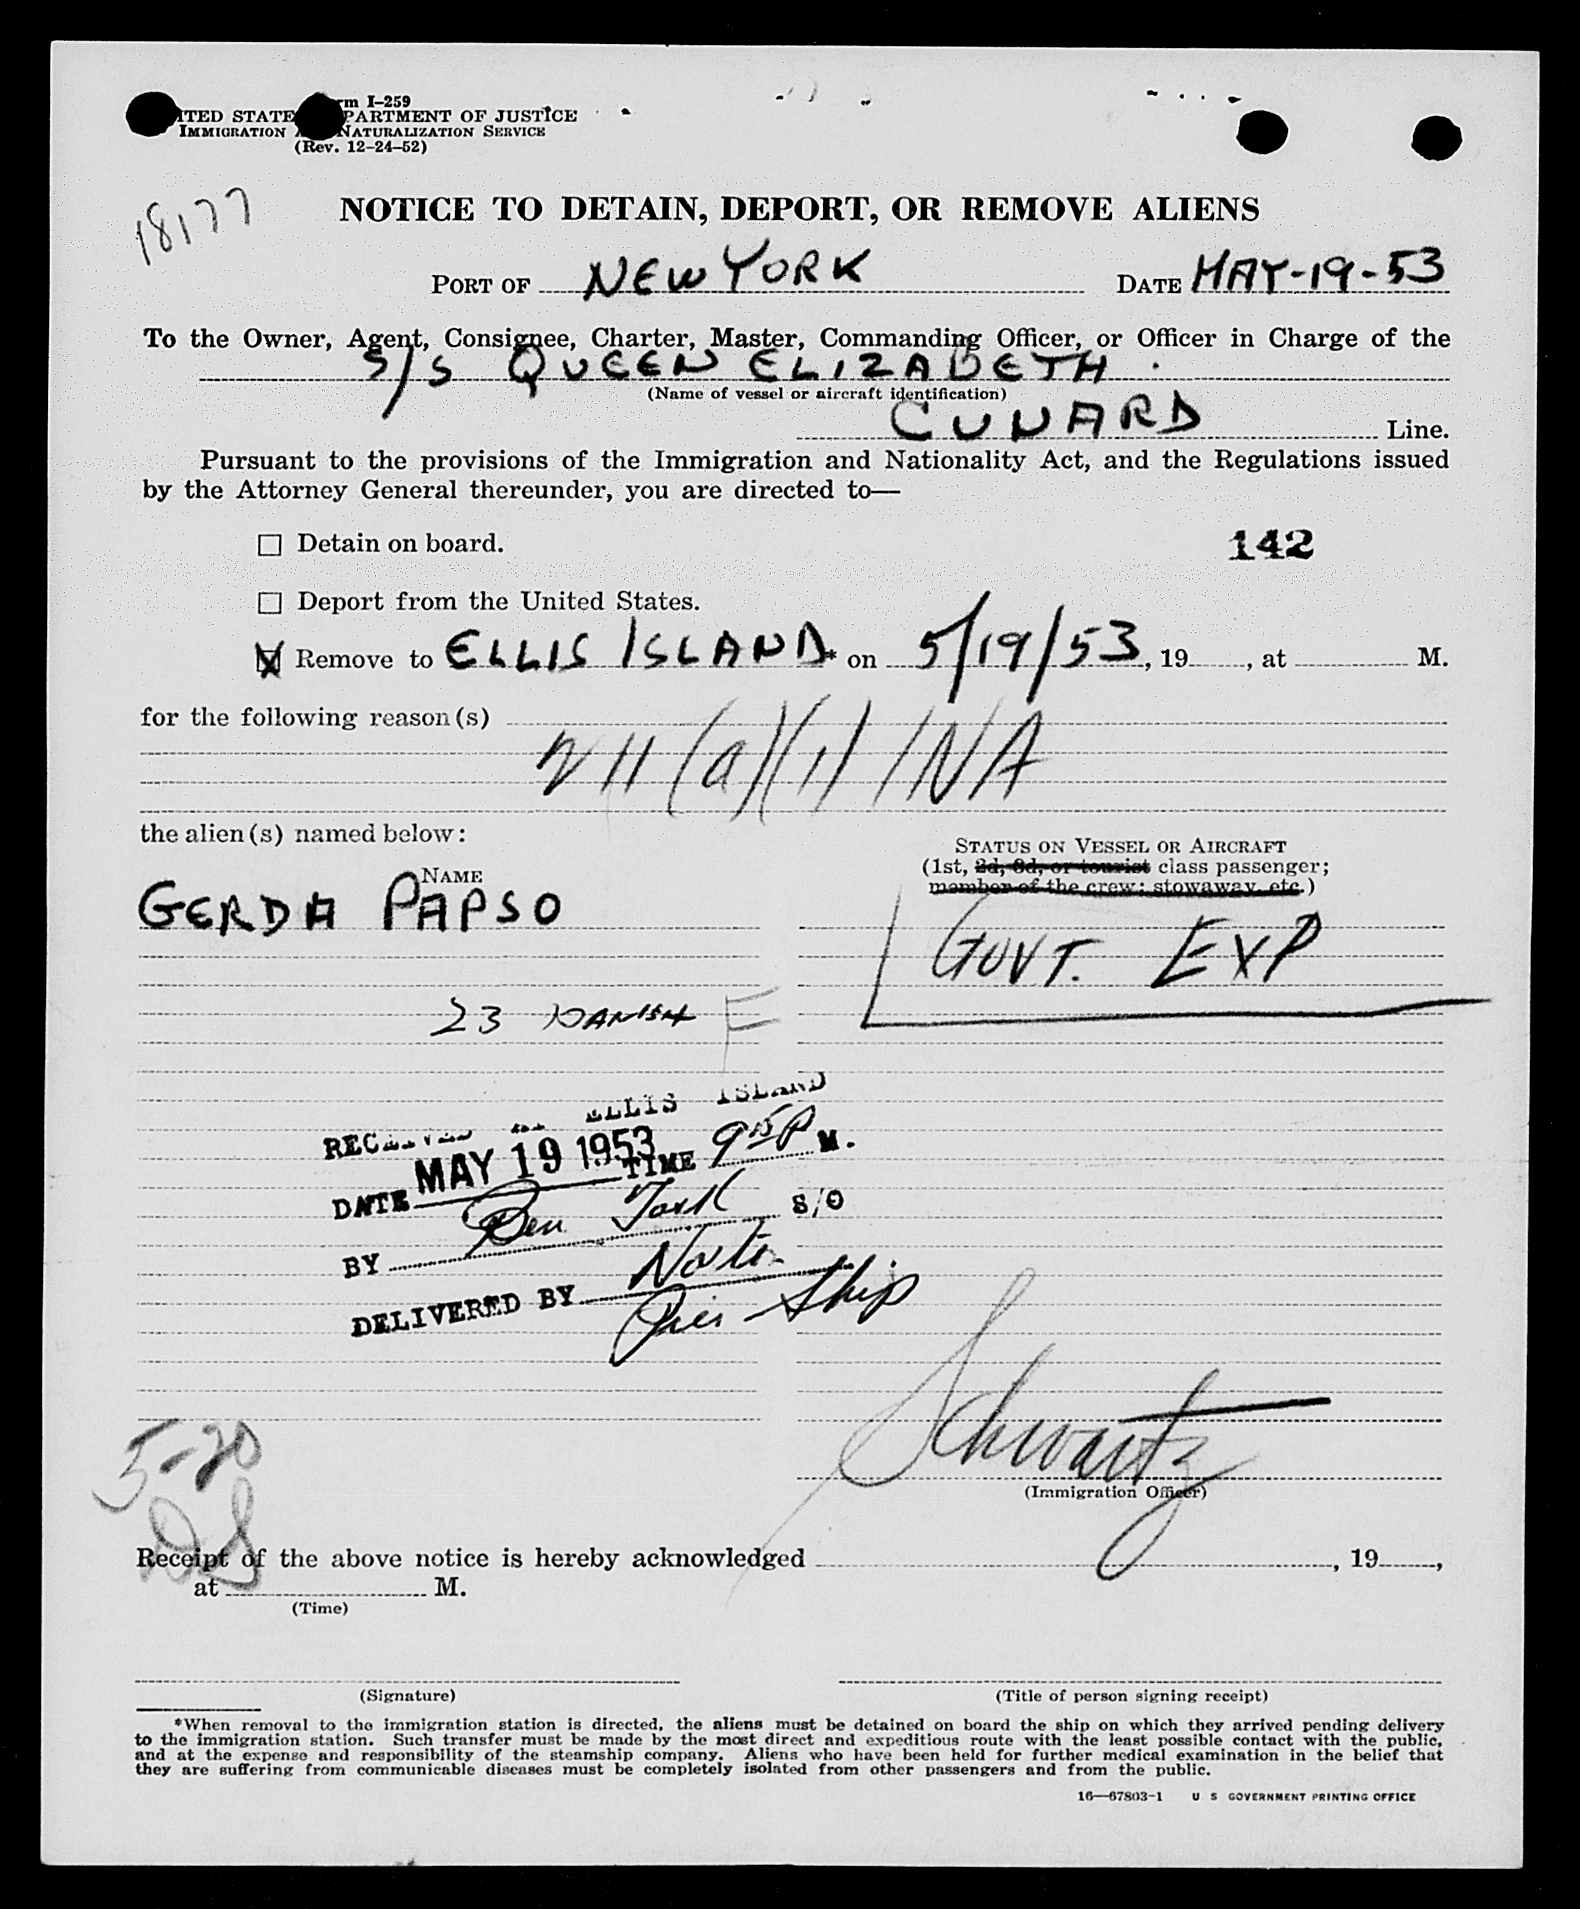 Form I-259
UNITED STATES DEPARTMENT OF JUSTICE
IMMIGRATION AND NATURALIZATION SERVICE
(Rev. 12-24-52)
18177
NOTICE TO DETAIN, DEPORT, OR REMOVE ALIENS
PORT OF NEW YORK DATE MAY-19-53
To the Owner, Agent, Consignee, Charter, Master, Commanding Officer, or Officer in Charge of the
S/S QUEEN ELIZABETH.
(Name of vessel or aircraft identification)
CUNARD Line.
Pursuant to the provisions of the Immigration and Nationality Act, and the Regulations issued
by the Attorney General thereunder, you are directed to—
☐ Detain on board.
142
☐ Deport from the United States.
☒ Remove to ELLIS ISLAND* on 5/19/53, 19____, at ____ M.
for the following reason(s)
211(a)(1) INA
the alien(s) named below:
STATUS ON VESSEL OR AIRCRAFT
(1st, 2d, 3d, or tourist class passenger;
member of the crew; stowaway, etc.)
NAME
GERDA PAPSO
GOVT. EXP
23 DANISH F
RECEIVED AT ELLIS ISLAND
DATE MAY 19 1953 TIME 9 15 P M.
BY Ben S/O
DELIVERED BY
Pier - Ship
5-20
DS
Schwartz
(Immigration Officer)
Receipt of the above notice is hereby acknowledged ____, 19____,
at ____ M.
(Time)
(Signature) (Title of person signing receipt)
*When removal to the immigration station is directed, the aliens must be detained on board the ship on which they arrived pending delivery
to the immigration station. Such transfer must be made by the most direct and expeditious route with the least possible contact with the public,
and at the expense and responsibility of the steamship company. Aliens who have been held for further medical examination in the belief that
they are suffering from communicable diseases must be completely isolated from other passengers and from the public.
16—67803-1 U S GOVERNMENT PRINTING OFFICE